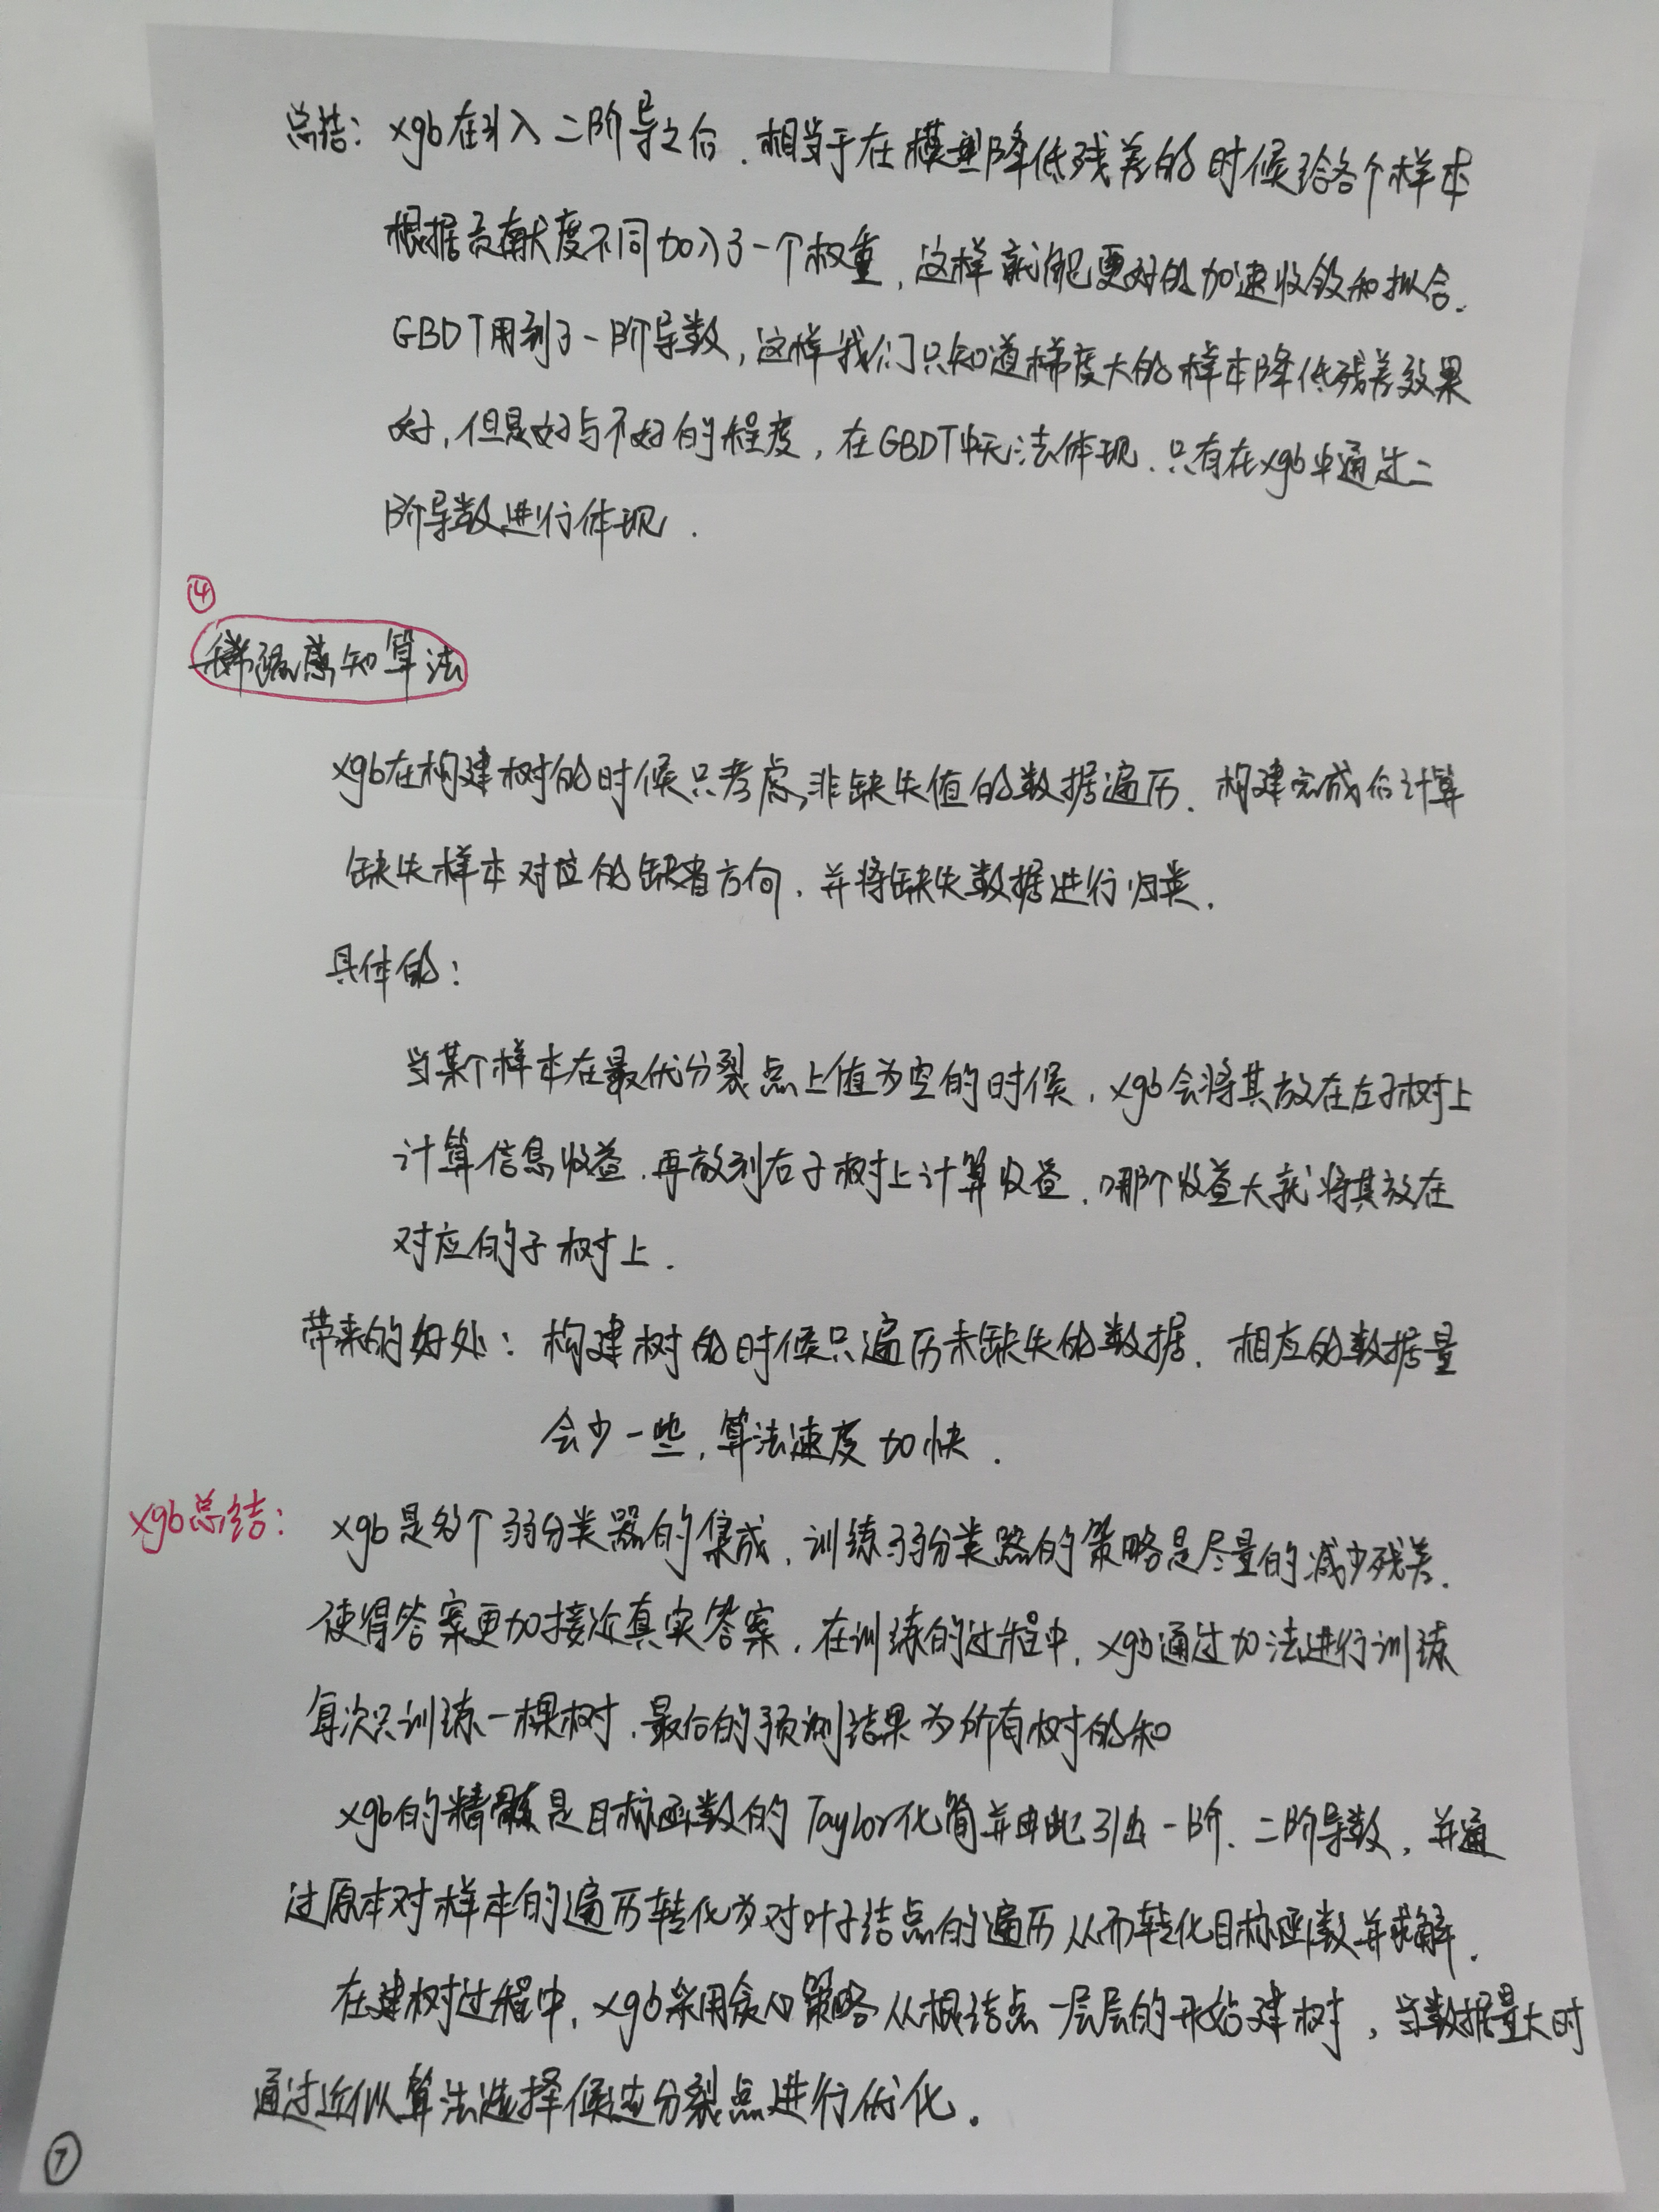 总结：xgb在引入二阶导之后，相当于在模型降低残差的时候给各个样本
根据贡献度不同加入了一个权重，这样就能更好的加速收敛和拟合.
GBDT用到了一阶导数，这样我们只知道梯度大的样本降低残差效果
好，但是好与不好的程度，在GBDT中无法体现.只有在xgb中通过二
阶导数进行体现.
④
稀疏感知算法
xgb在构建树的时候只考虑非缺失值的数据遍历.构建完成后计算
缺失样本对应的缺省方向.并将缺失数据进行归类.
具体的：
当某个样本在最优分裂点上值为空的时候，xgb会将其放在左子树上
计算信息收益.再放到右子树上计算收益，哪个收益大就将其放在
对应的子树上.
带来的好处：构建树的时候只遍历未缺失的数据.相应的数据量
会少一些，算法速度加快.
xgb总结：xgb是多个弱分类器的集成，训练弱分类器的策略是尽量的减少残差.
使得答案更加接近真实答案，在训练的过程中，xgb通过加法进行训练
每次只训练一棵树，最后的预测结果为所有树的和
xgb的精髓是目标函数的Taylor化简并由此引出一阶、二阶导数，并通
过原本对样本的遍历转化为对叶子结点的遍历从而转化目标函数并求解.
在建树过程中，xgb采用贪心策略从根结点一层层的开始建树，当数据量大时
通过近似算法选择候选分裂点进行优化.
⑦